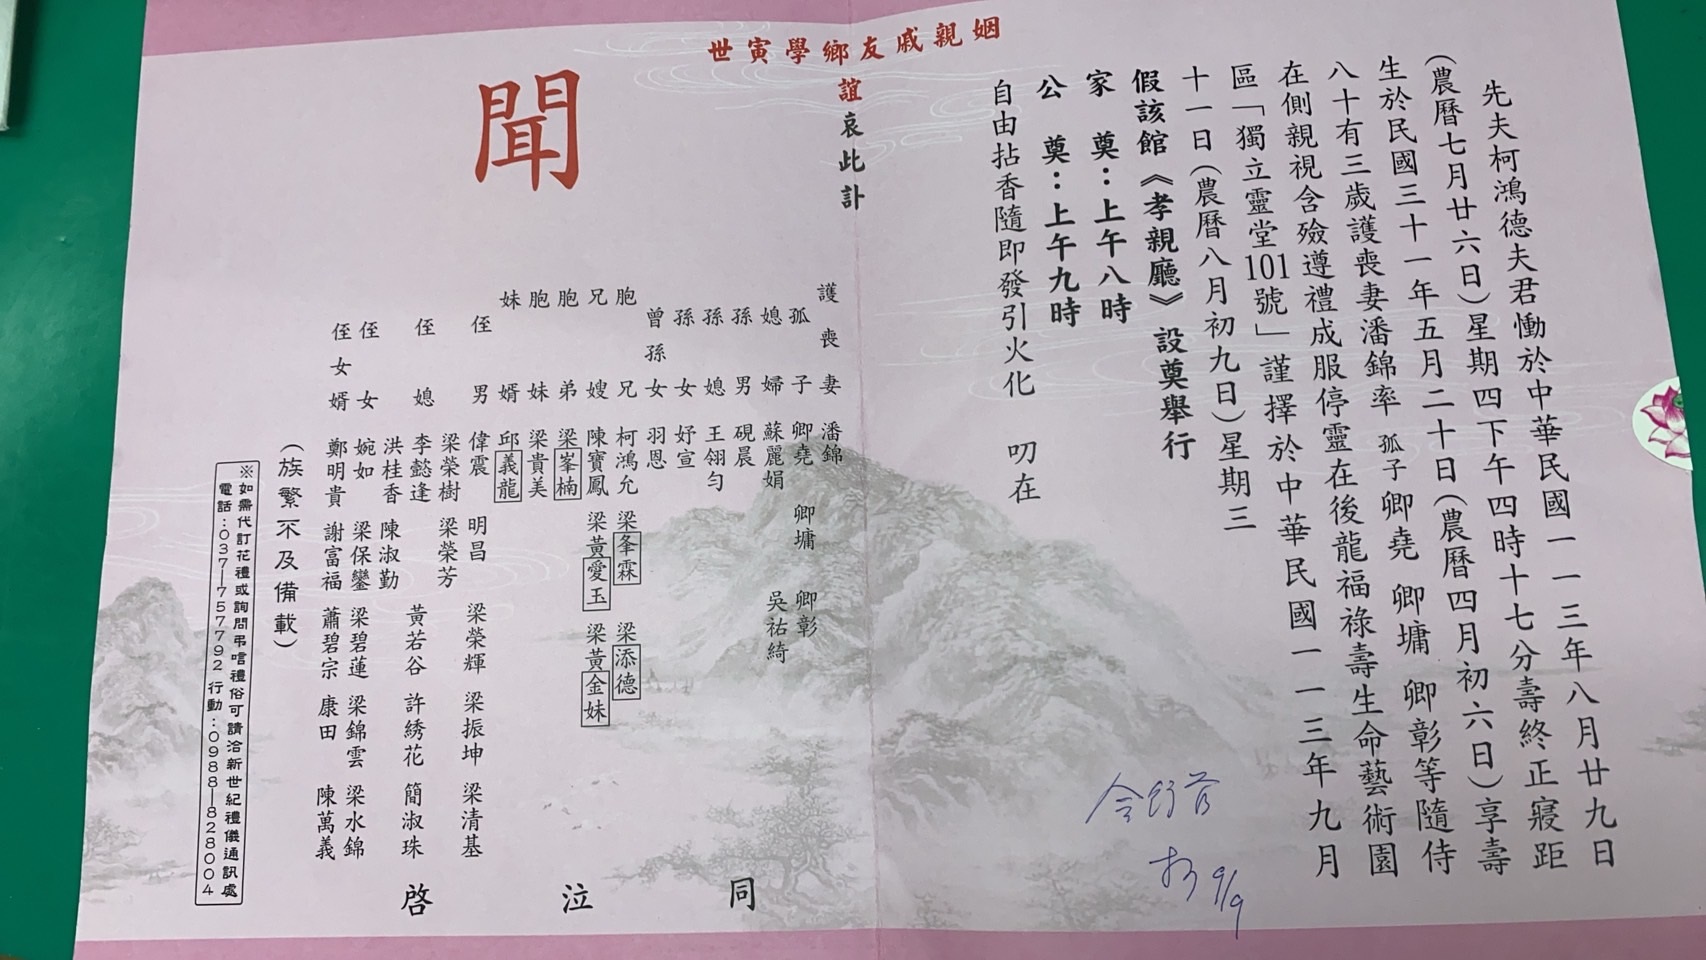 先夫柯鴻德夫君慟於中華民國一一三年八月廿九日
(農曆七月廿六日)星期四下午四時十七分壽終正寢距
生於民國三十一年五月二十日(農曆四月初六日)享壽
八十有三歲護喪妻潘錦率 孤子 卿堯 卿墉 卿彰等隨侍
在側親視含殮遵禮成服停靈在後龍福祿壽生命藝術園
區「獨立靈堂101號」謹擇於中華民國一一三年九月
十一日(農曆八月初九日)星期三
假該館《孝親廳》設奠舉行
家 奠:上午八時
公 奠:上午九時
自由拈香隨即發引火化 叨在
姻親戚友鄉學寅世
誼哀此訃
聞
護喪妻 潘錦
孤子 卿堯 卿墉 卿彰
媳婦 蘇麗娟 吳祐綺
孫男 硯晨
孫媳 王翎勻
孫女 妤宣
曾孫女 羽恩
胞兄 柯鴻允 梁夆霖 梁添德
兄嫂 陳寶鳳 梁黃愛玉 梁黃金妹
胞弟 梁峯楠
胞妹 梁貴美
妹婿 邱義龍
侄男 偉震 明昌 梁榮輝 梁振坤 梁清基
梁榮樹 梁榮芳
侄媳 李懿逢 黃若谷 許綉花 簡淑珠
洪桂香 陳淑勤
侄女 婉如 梁保鑾 梁碧蓮 梁錦雲 梁水錦
侄女婿 鄭明貴 謝富福 蕭碧宗 康田 陳萬義
(族繁不及備載)
同泣啓
※如需代訂花禮或詢問弔唁禮俗可請洽新世紀禮儀通訊處
電話:037—757792 行動:0988—828004
9/9